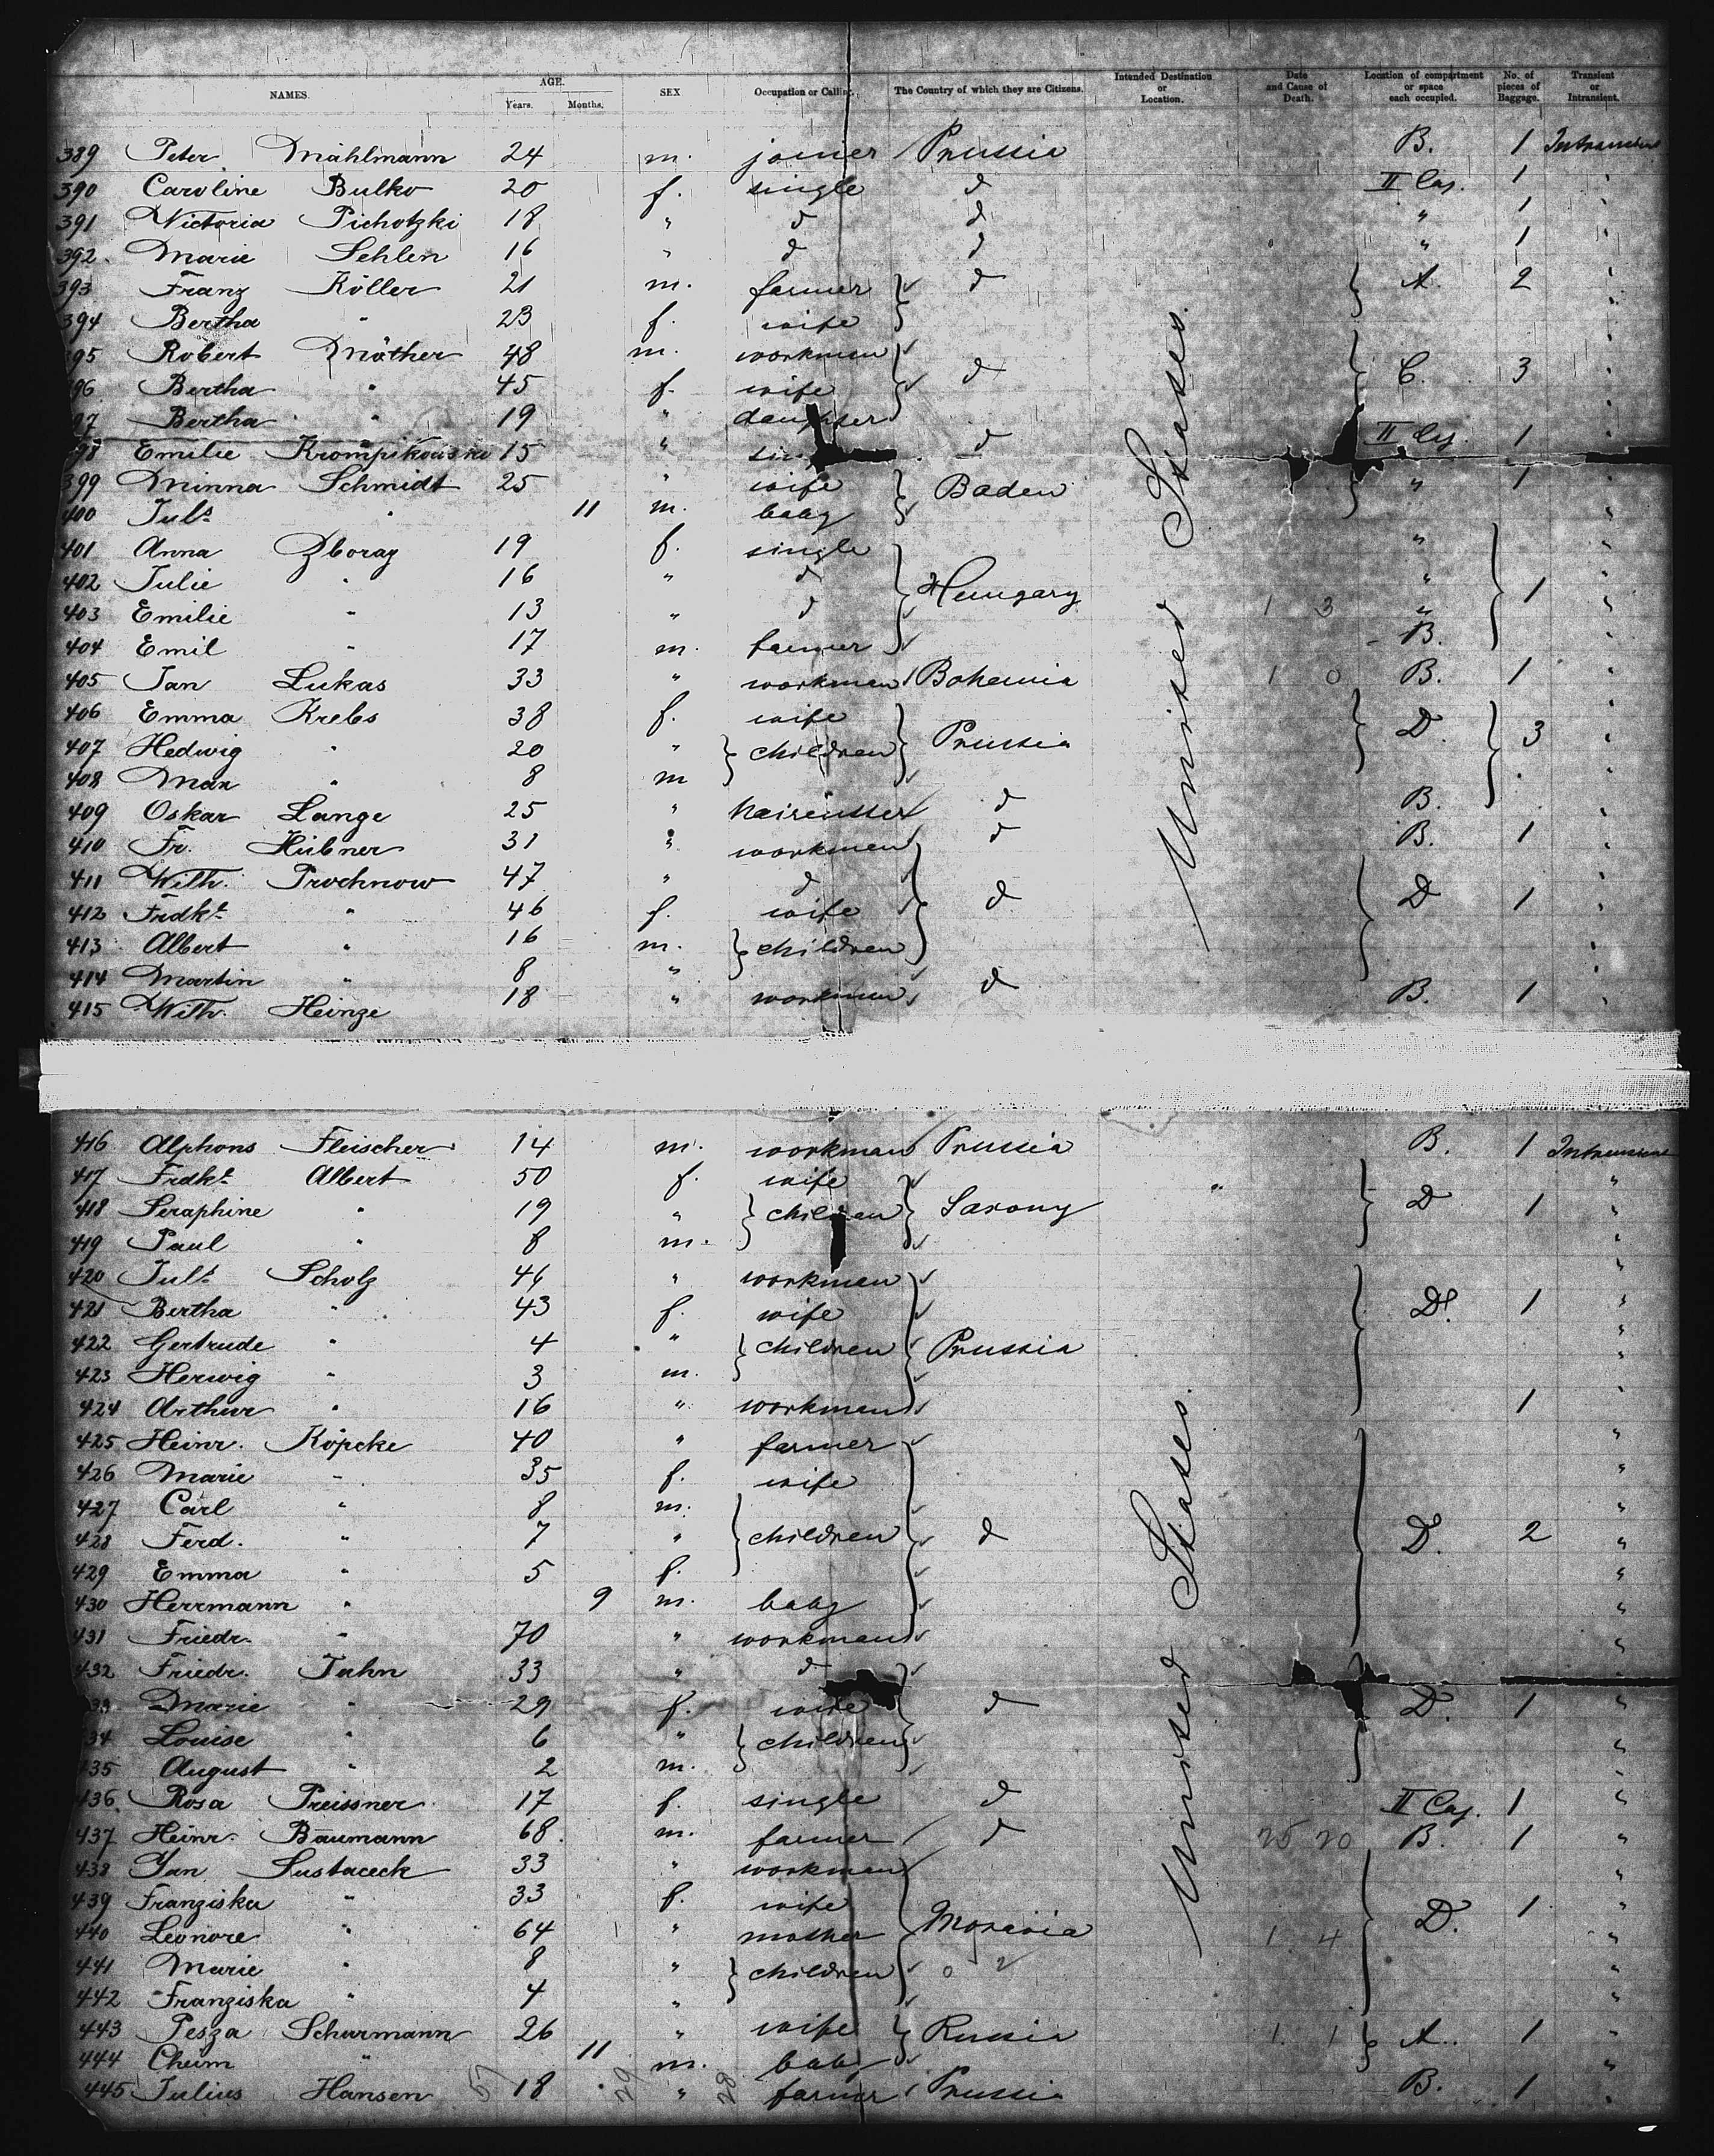 NAMES. AGE. Years. Months. SEX Occupation or Calling. The Country of which they are Citizens. Intended Destination or Location. Date and Cause of Death. Location of compartment or space each occupied. No. of pieces of Baggage. Transient or Intransient.
389 Peter Mählmann 24 m. joiner Prussia B. 1 Intransient
390 Caroline Bulko 20 f. single d II Caj. 1 "
391 Victoria Pichotzki 18 " d d " 1 "
392 Marie Sehlen 16 " d d " 1 "
393 Franz Köller 21 m. farmer d A. 2 "
394 Bertha " 23 f. wife "
395 Robert Möther 48 m. workman d C. 3 "
396 Bertha " 45 f. wife "
397 Bertha " 19 " daughter "
398 Emilie 15 " d II Caj. 1 "
399 Minna Schmidt 25 " wife Baden " 1 "
400 Juls " 11 m. baby "
401 Anna Zboray 19 f. single Hungary " 1 "
402 Julie " 16 " d " "
403 Emilie " 13 " d 1 3 " "
404 Emil " 17 m. farmer B. "
405 Jan Lukas 33 " workman Bohemia 1 0 B. 1 "
406 Emma Krebs 38 f. wife Prussia D. 3 "
407 Hedwig " 20 " children "
408 Max " 8 m "
409 Oskar Lange 25 " haircutter d B. "
410 Fr. Hübner 31 " workman d B. 1 "
411 Wilh. Prochnow 47 " d d D 1 "
412 Frdke " 46 f. wife "
413 Albert " 16 m. children "
414 Martin " 8 " "
415 Wilh. Heinze 18 " workman d B. 1 "
United States.
416 Alphons Fleischer 14 m. workman Prussia B. 1 Intransient
417 Frdke Albert 50 f. wife Saxony " D 1 "
418 Seraphine " 19 " children "
419 Paul " 8 m. "
420 Juls Scholz 46 " workman Prussia D. 1 "
421 Bertha " 43 f. wife "
422 Gertrude " 4 " children "
423 Herwig " 3 m. "
424 Arthur " 16 " workman 1 "
425 Heinr. Köpcke 40 " farmer d D. 2 "
426 Marie " 35 f. wife "
427 Carl " 8 m. children "
428 Ferd. " 7 " "
429 Emma " 5 f. "
430 Herrmann " 9 m. baby "
431 Friedr. " 70 " workman "
432 Friedr. Jahn 33 " d d D. 1 "
433 Marie " 29 f. wife "
434 Louise " 6 " children "
435 August " 2 m. "
436 Rosa Preissner 17 f. single d II Caj. 1 "
437 Heinr. Baumann 68 m. farmer d 25 20 B. 1 "
438 Jan Sustaceck 33 " workman Moravia D. 1 "
439 Franziska " 33 f. wife "
440 Leonore " 64 " mother 1 4 "
441 Marie " 8 " children "
442 Franziska " 4 " "
443 Pesza Schurmann 26 " wife Russia 1 1 A. 1 "
444 Cheim " 11 m. baby "
445 Julius Hansen 18 " farmer Prussia B. 1 "
United States.
57 29 28